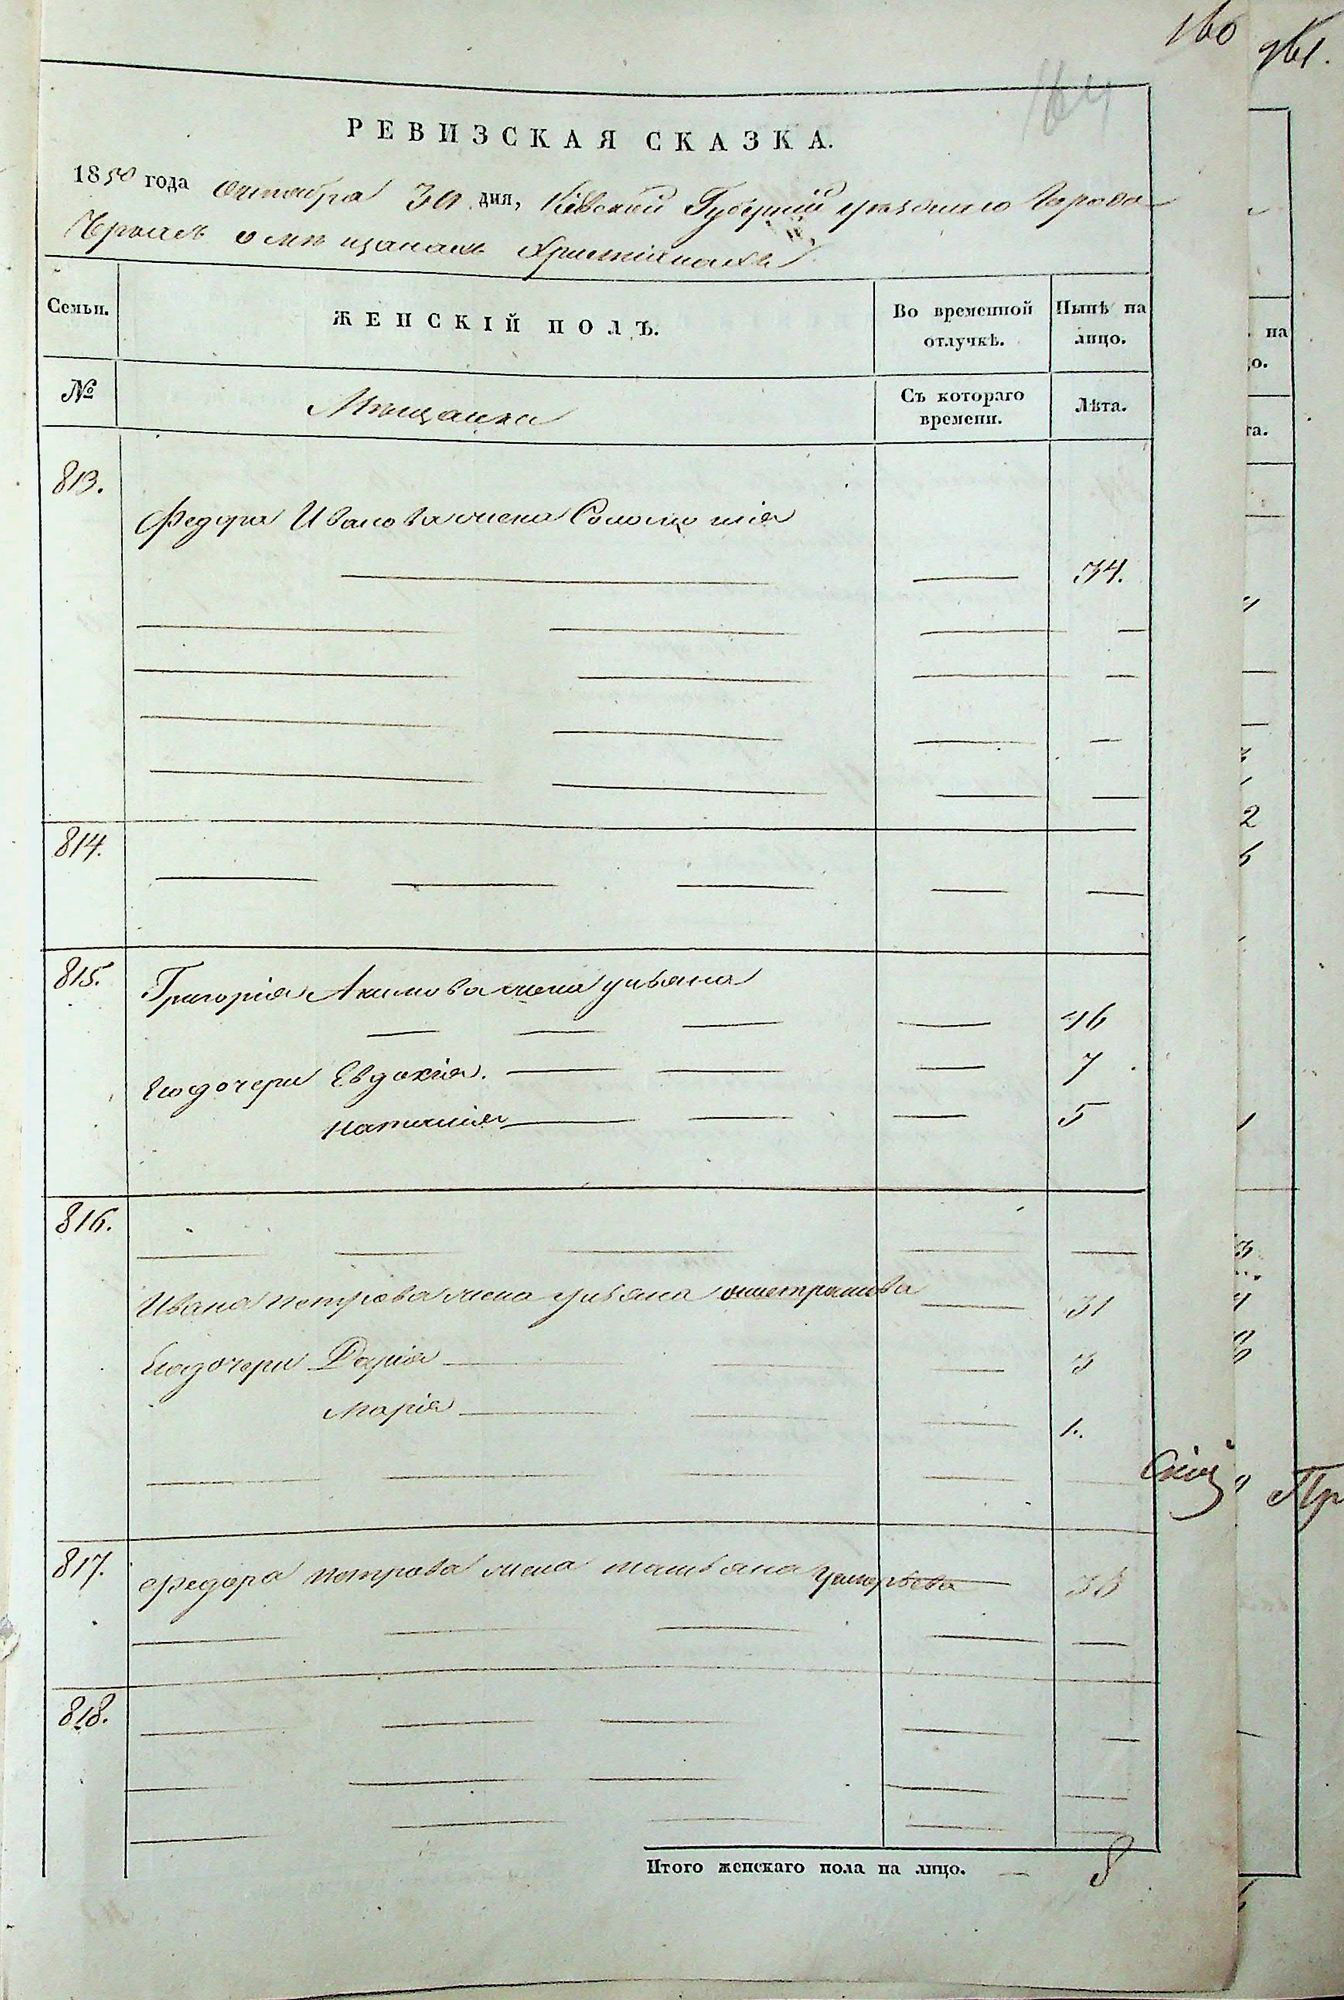 160
164
РЕВИЗСКАЯ СКАЗКА.
1850 года Октября 30 дня, Кіевской Губерніи уезднаго Города
Черкасъ о мѣщанахъ Христіянахъ
Семьи.
ЖЕНСКІЙ ПОЛЪ.
Во временной отлучкѣ.
Нынѣ на лицо.
№
Мѣщански
Съ котораго времени.
Лѣта.
813.
Федора Иванова жена Соломонія
34.
814.
815.
Григорія Акимова жена Ульяна
46
Его дочери Евдокія.
7
Наталія
5
816.
Ивана Петрова жена Ульяна
31
Его дочери Дарія
3
Марія
1.
817.
Федора Петрова жена Татьяна
818.
Итого женскаго пола на лицо. — 8
на
та.
Пр